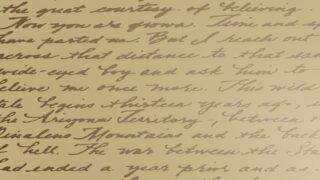 the great courtesy of believing
Now you are grown. Time and sp
have parted us. But I reach out
across that distance to that sam
wide-eyed boy and ask him to
believe me once more. This wild
tale begins thirteen years ago, i
the Arizona Territory, between
Pinaleno Mountains and the back
of hell. The war between the Sta
had ended a year prior and as